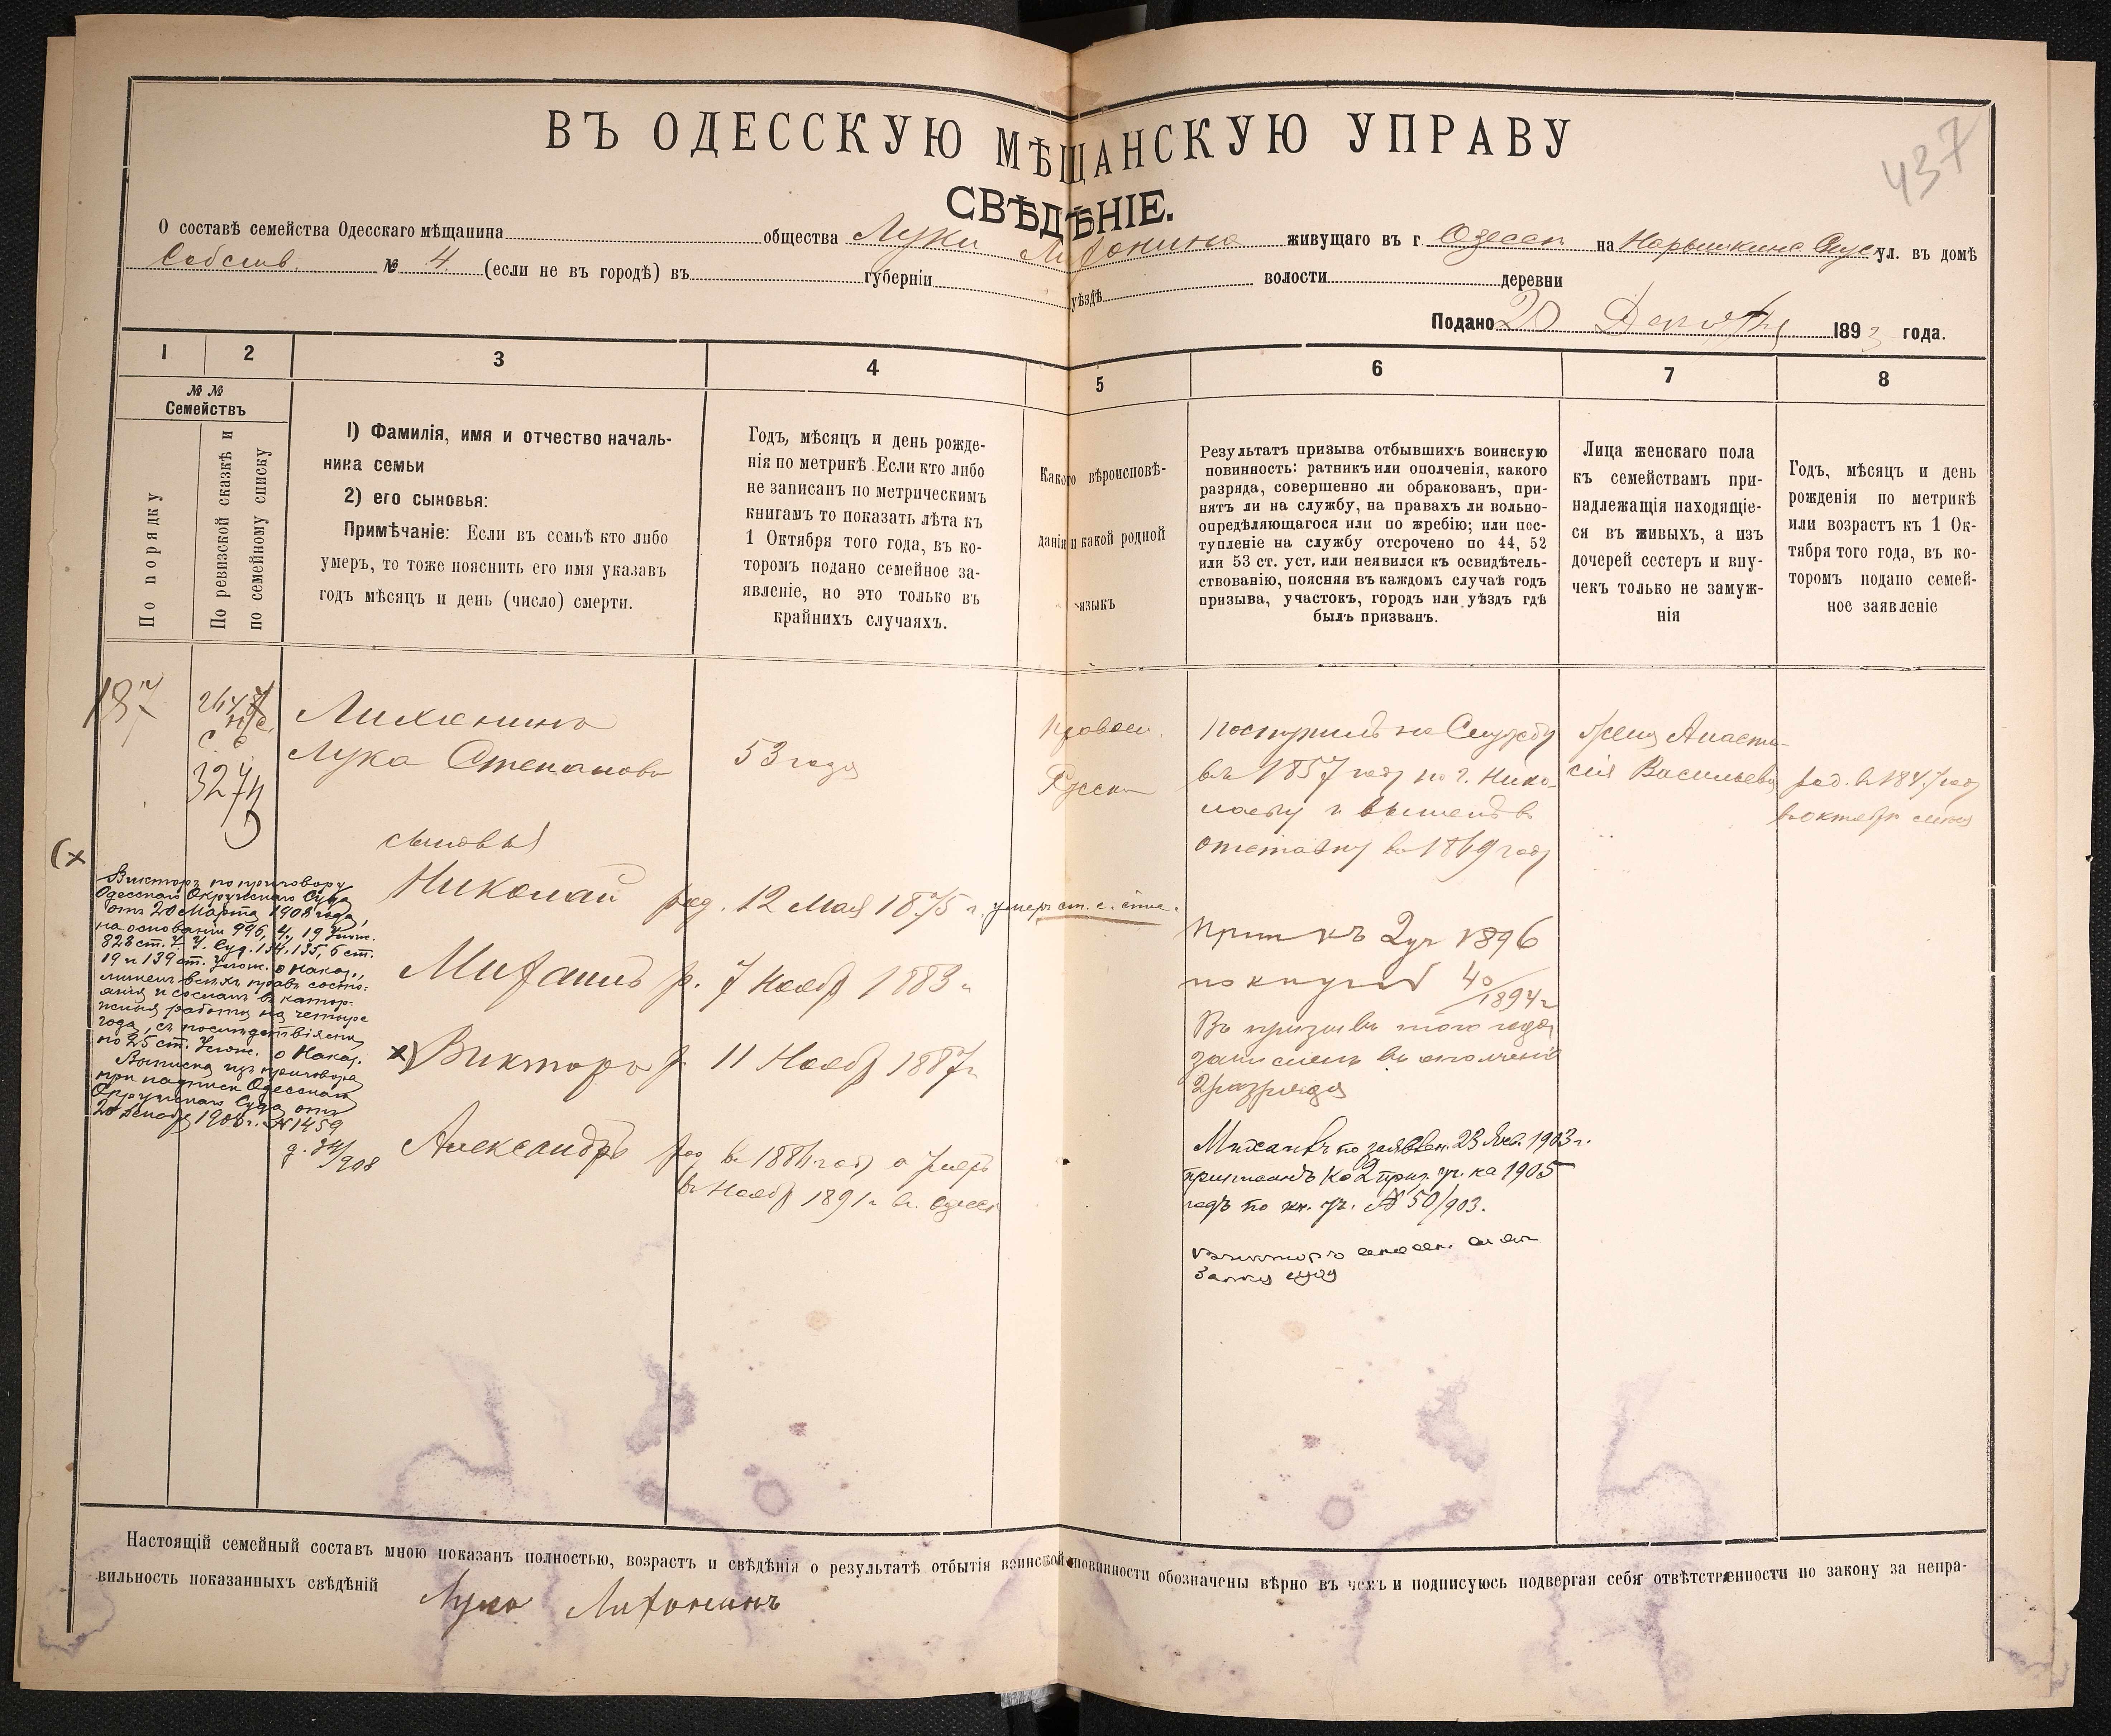 437
ВЪ ОДЕССКУЮ МѢЩАНСКУЮ УПРАВУ
СВѢДѢНІЕ.
О составѣ семейства Одесскаго мѣщанина общества Луки Лихонина живущаго въ г. Одессѣ на Нарышкина ул. въ домѣ
Собств. № 4. (если не въ городѣ) въ губерніи уѣздѣ волости деревни
Подано 20 Декабря 1893 года.
1 2 3 4 5 6 7 8
№ №
Семействъ
По порядку
По ревизской сказкѣ и
по семейному списку
1) Фамилія, имя и отчество началь-
ника семьи
2) его сыновья:
Примѣчаніе: Если въ семьѣ кто либо
умеръ, то тоже пояснить его имя указавъ
годъ мѣсяцъ и день (число) смерти.
Годъ, мѣсяцъ и день рожде-
нія по метрикѣ. Если кто либо
не записанъ по метрическимъ
книгамъ то показать лѣта къ
1 Октября того года, въ ко-
торомъ подано семейное за-
явленіе, но это только въ
крайнихъ случаяхъ.
Какого вѣроисповѣ-
данія и какой родной
языкъ
Результатъ призыва отбывшихъ воинскую
повинность: ратникъ или ополченія, какого
разряда, совершенно ли обракованъ, при-
нятъ ли на службу, на правахъ ли вольно-
опредѣляющагося или по жребію; или пос-
тупленіе на службу отсрочено по 44, 52
или 53 ст. уст. или неявился къ освидѣтель-
ствованію, поясняя въ каждомъ случаѣ годъ
призыва, участокъ, городъ или уѣздъ гдѣ
былъ призванъ.
Лица женскаго пола
къ семействамъ при-
надлежащія находящіе-
ся въ живыхъ, а изъ
дочерей сестеръ и вну-
чекъ только не замуж-
нія
Годъ, мѣсяцъ и день
рожденія по метрикѣ
или возрастъ къ 1 Ок-
тября того года, въ ко-
торомъ подано семей-
ное заявленіе
187
с. с.
3274
Лихонинъ
Лука Степановъ
53 года
Правосл.
Русск
поступилъ на Службу
въ 1857 году по г. Нико-
лаеву и вышелъ въ
отставку въ 1869 году
жена Анаста-
сія Васильева
род. въ 1847 году
въ октябрѣ
сыновья
Николай род. 12 Мая 1875 г. умеръ
Прип къ 2 уч 1896
40/1894 г
Въ призывъ того года
зачисленъ въ ополченіе
2 разряда
Михаилъ р. 7 Ноябр 1883 г
х) Викторъ р. 11 Ноябр 1887 г
Александръ род въ году а умеръ
въ Ноябр 1891 г въ Одессѣ
(х
Викторъ по приговору
Одесскаго Окружнаго Суда
отъ 20 Марта 1908 года,
на основаніи 996, 4, 19 Улож.
828 ст. У. У. Суд. 134, 135, 6 ст.
19 и 139 ст. Улож. о Наказ.,
лишенъ всѣхъ правъ состо-
янія и сосланъ въ катор-
жныя работы на четыре
года, съ послѣдствіями
по 25 ст. Улож. о Наказ.
Выписка изъ приговора
при надписи Одесскаго
Окружнаго Суда отъ
20 Декабр 1908 г. №1459
д. 34/908
Михаилъ по заявлен. 23 Янв. 1903 г.
приписанъ ко 2 приз. уч. на 1905
годъ по кн. уч. № 50/903.
Викторъ
Настоящій семейный составъ мною показанъ полностью, возрастъ и свѣдѣнія о результатѣ отбытія воинской повинности обозначены вѣрно въ чемъ и подписуюсь подвергая себя отвѣтственности по закону за непра-
вильность показанныхъ свѣдѣній Лука Лихонинъ